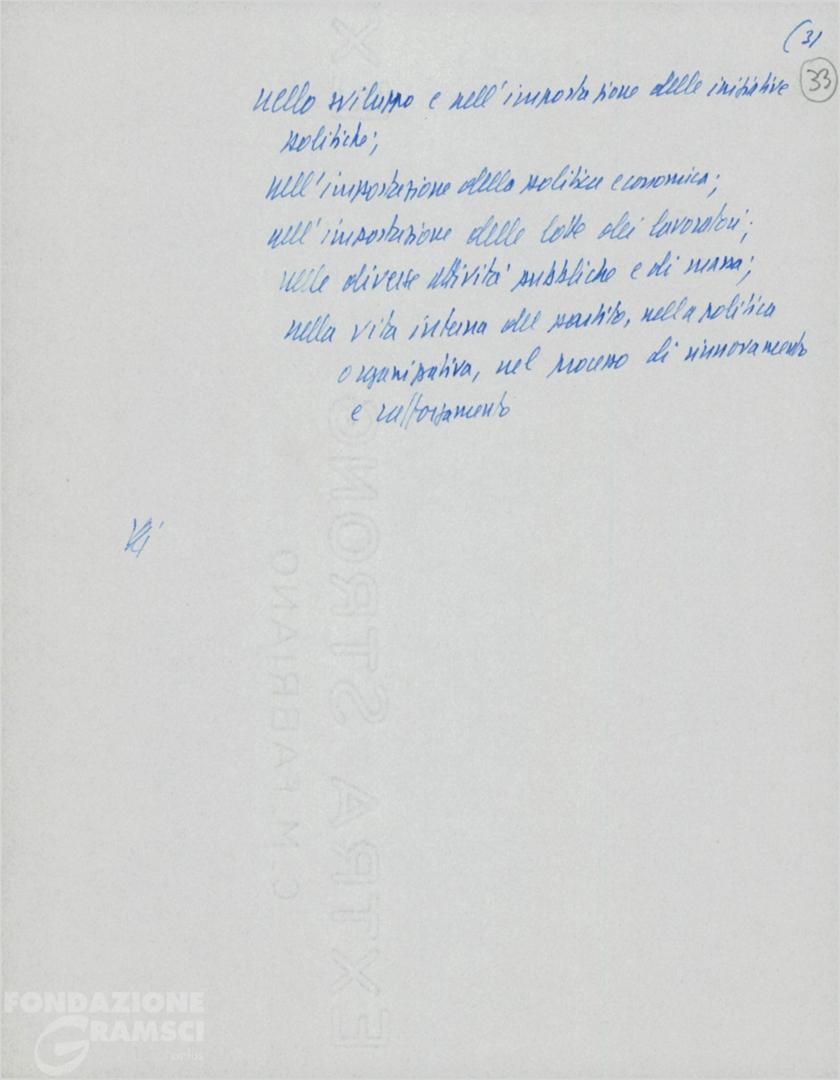 (3)
33
nello sviluppo e nell'impostazione delle iniziative
politiche;
nell'impostazione della politica economica;
nell'impostazione delle lotte dei lavoratori;
nelle diverse attività pubbliche e di massa;
nella vita interna del partito, nella politica
organizzativa, nel processo di rinnovamento
e rafforzamento
EXTRA STRONG
C.M. FABRIANO
FONDAZIONE
GRAMSCI
onlus